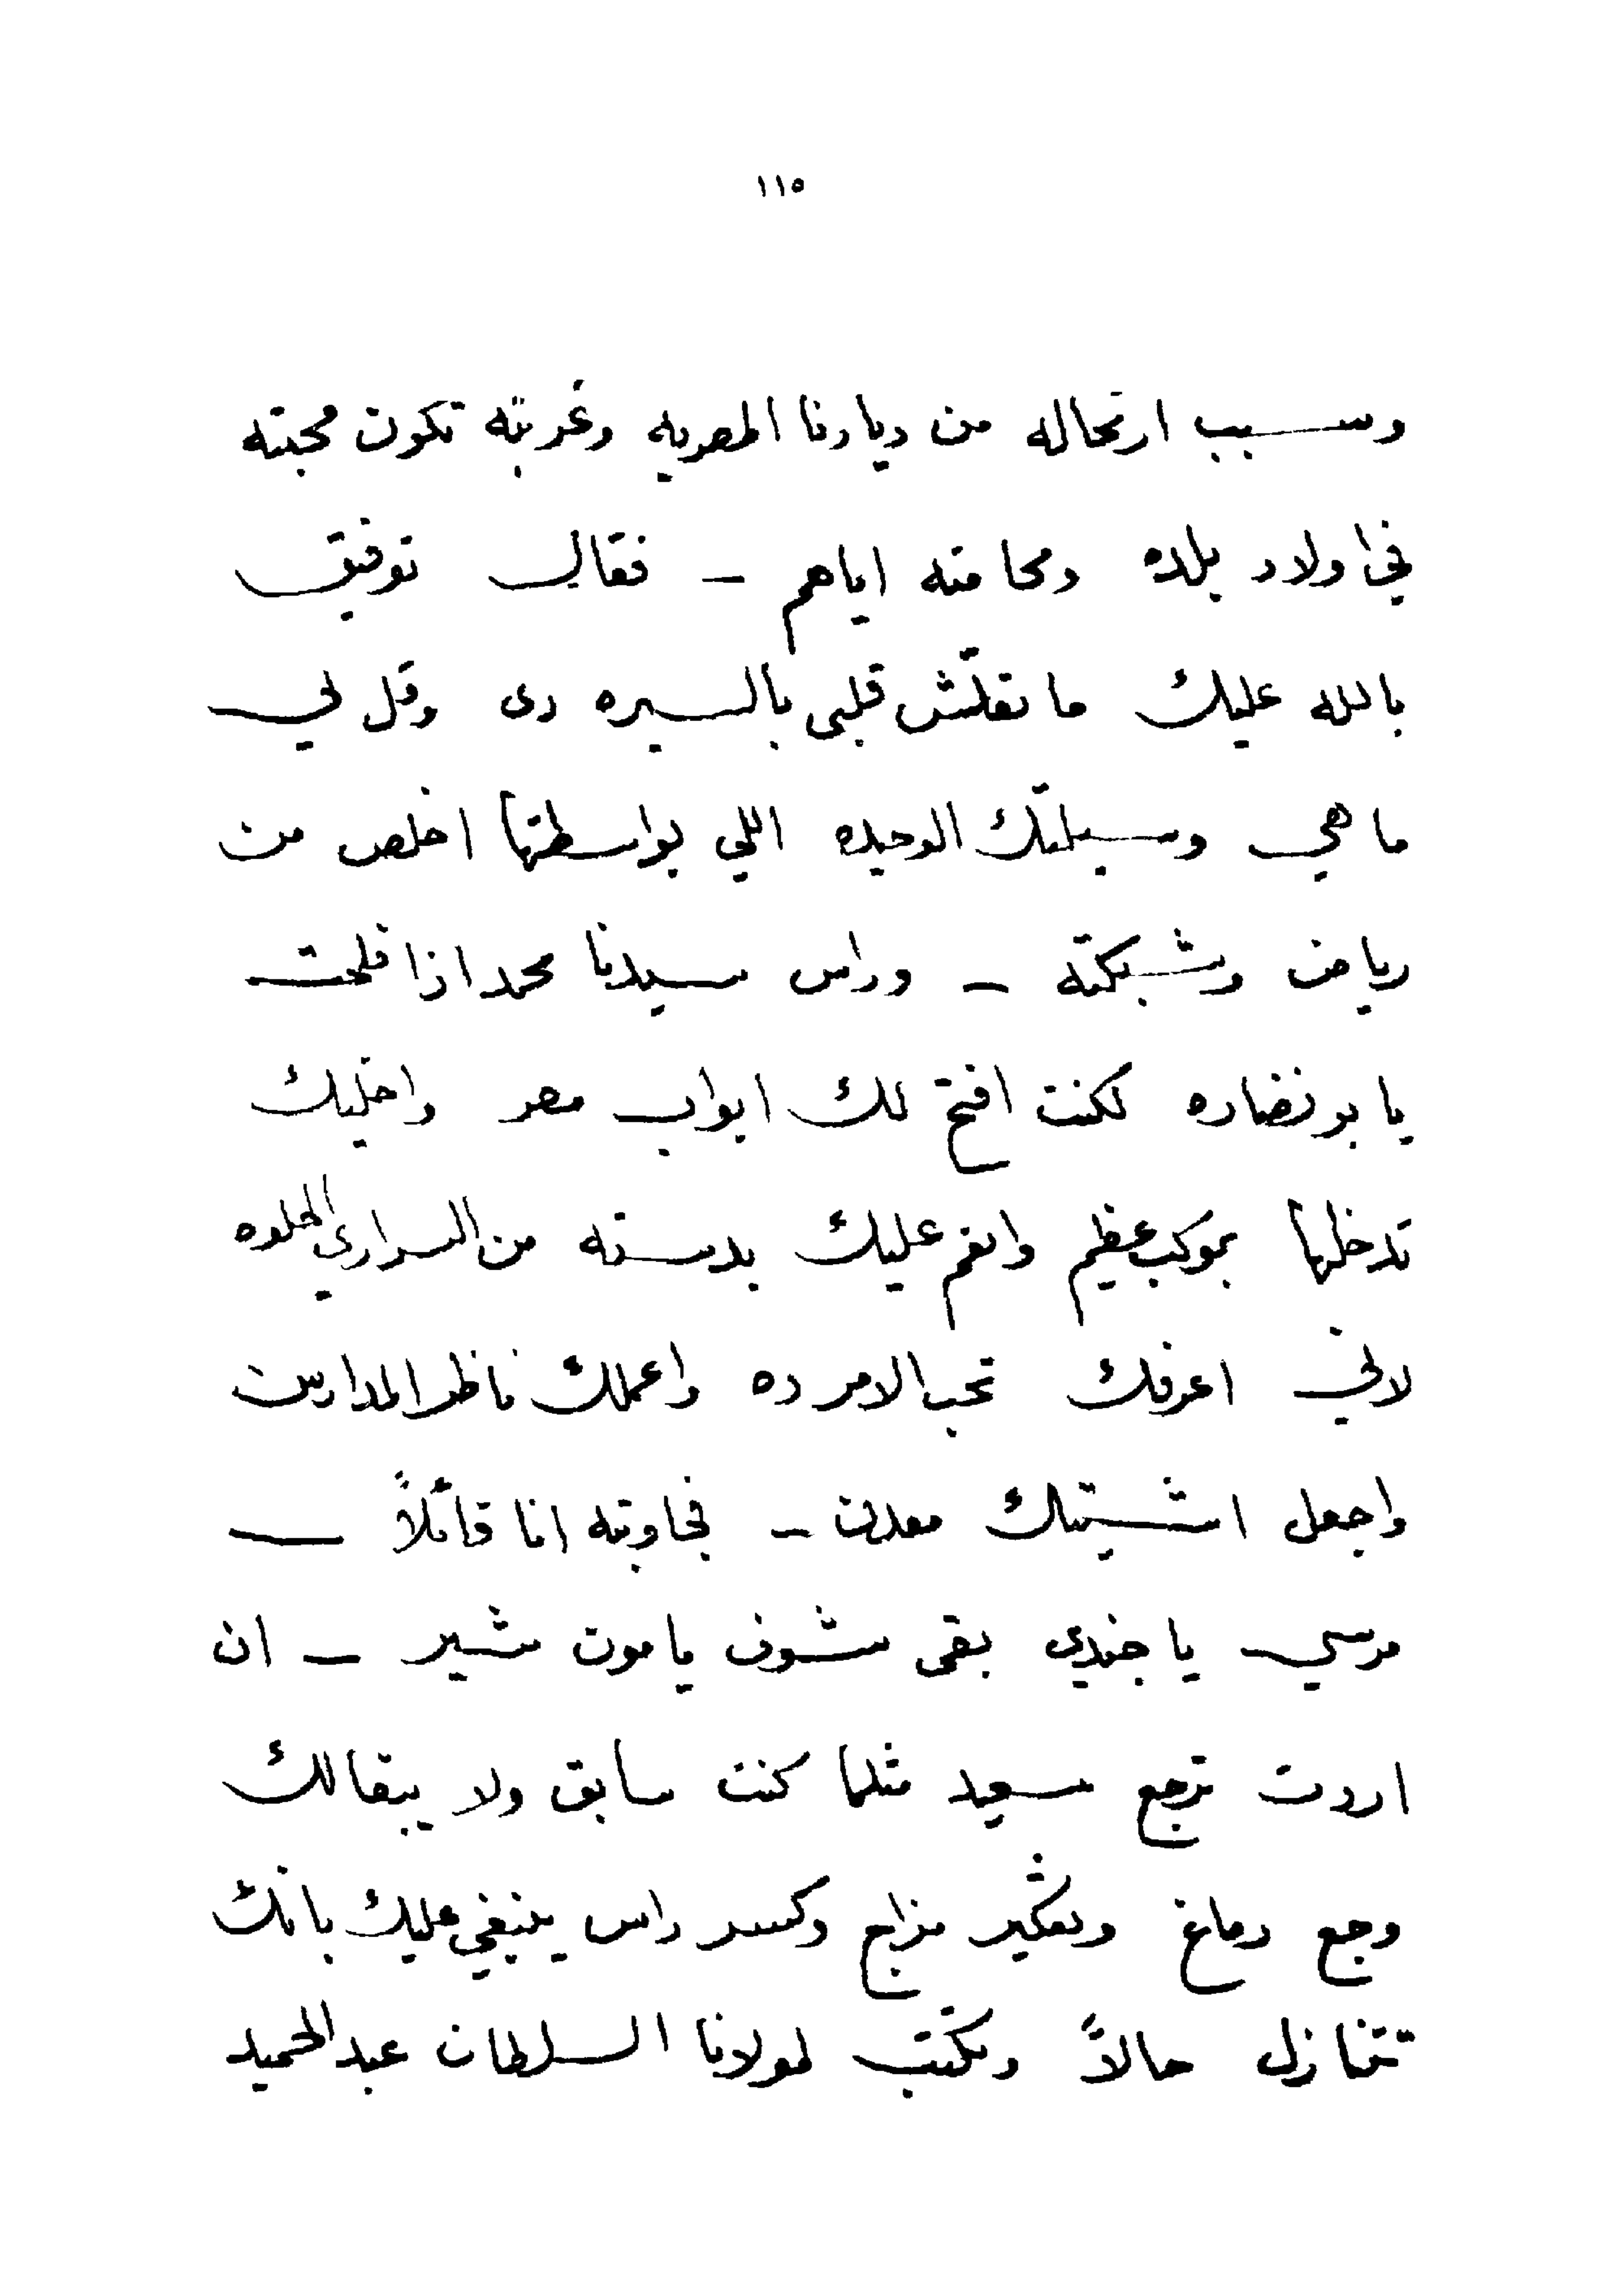 ١١٥
وسبب ارتحاله من ديارنا المصريه وغربته تكون محبته
في اولاد بلده ومحامته اياهم — فقال توفيق
بالله عليك ما تقلّش قلبى بالسيره دى وقل لي
ما هي وسيلتك الوحيده اللي بواسطتها اخلص من
رياض وشبكته — وراس سيدنا محمد اذا فلحت
يا بو نضاره لكنت افتح لك ابواب مصر واخليك
تدخلها بموكب عظيم وانعم عليك بدسته من السراري الحلوه
لاني اعرفك تحب الامر ده واعملك ناظر المدارس
واجعل اشيتك معدن — فجاوبته انا قائلاً —
مرسي يا جندي بقى شوف يا مون شير — ان
اردت ترجع سعيد مثلما كنت سابق ولا يبقالك
وجع دماغ وتعكير مزاج وكسر راس ينبغي عليك بانك
تتنازل حالاً وتكتب لمولانا السلطان عبد الحميد